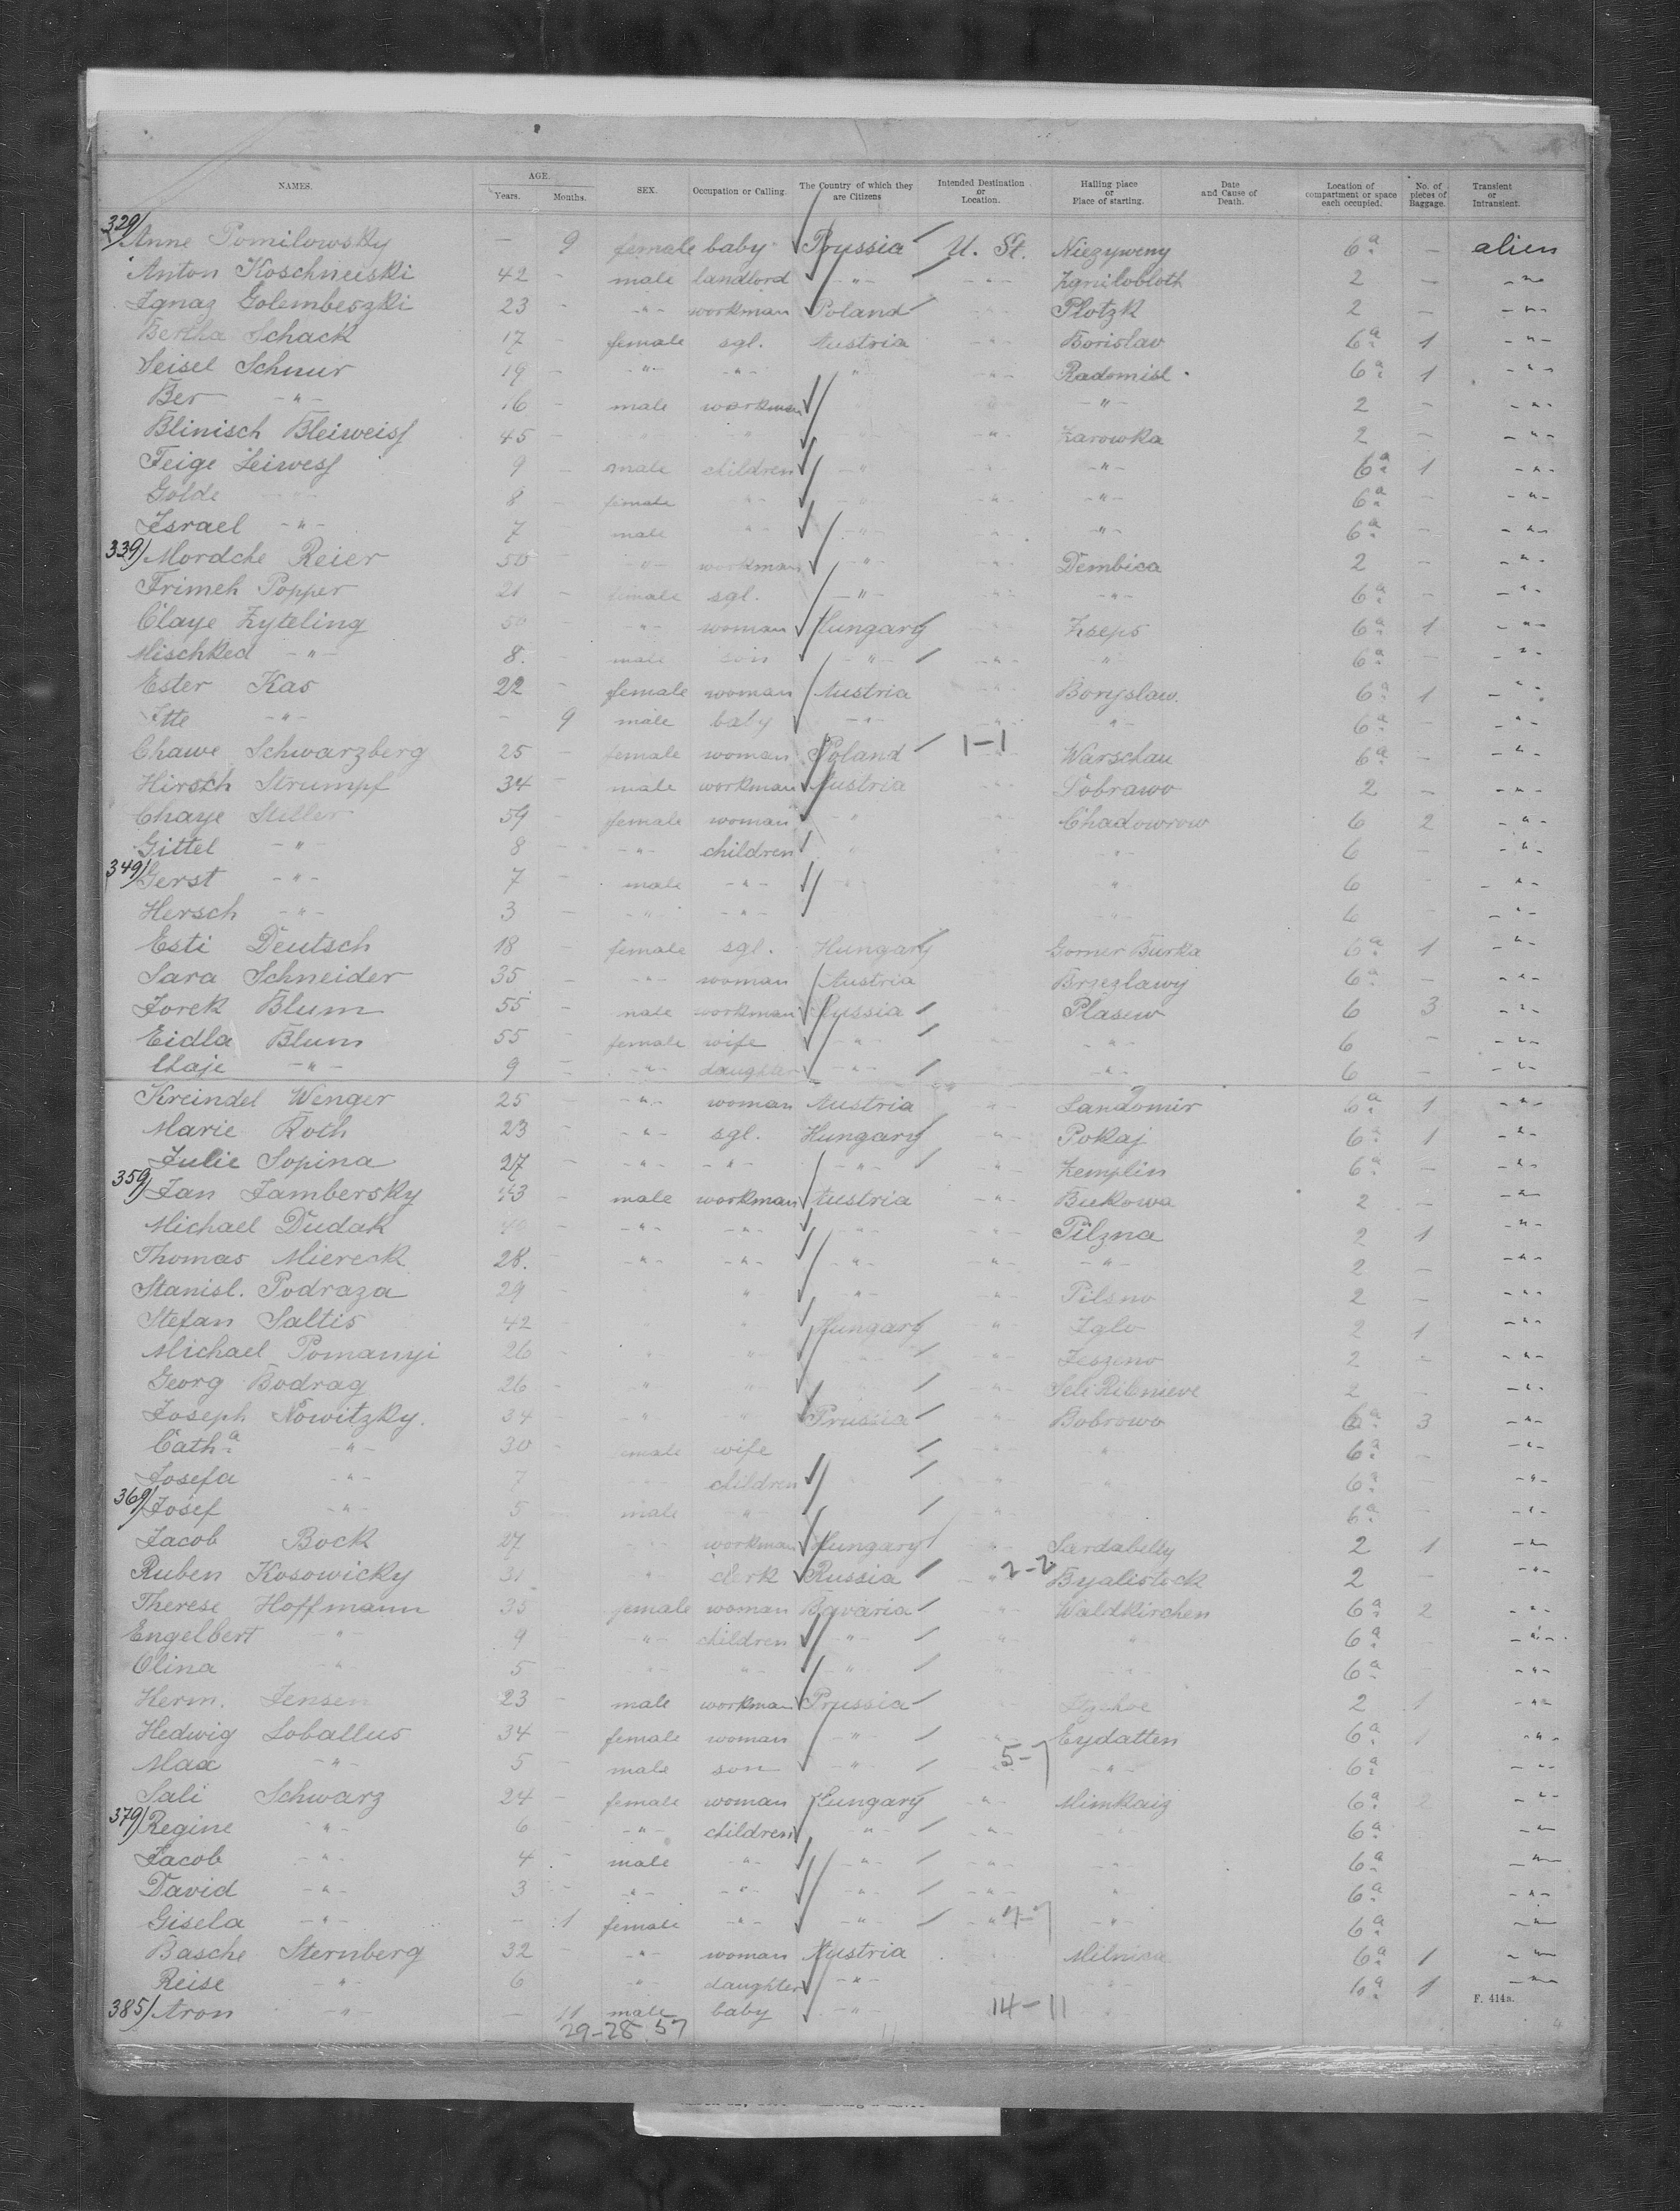 NAMES. AGE. Years. Months. SEX. Occupation or Calling. The Country of which they are Citizens Intended Destination or Location. Halling place or Place of starting. Date and Cause of Death. Location of compartment or space each occupied. No. of pieces of Baggage. Transient or Intransient.
329) Anne Pomilowsky — 9 female baby Prussia U. St. Niezyweny 6a — alien
Anton Koschneiski 42 - male landlord -"- -"- 2 — -"-
Ignaz Golembeszki 23 - -"- workman Poland -"- Plotzk 2 — -"-
Bertha Schack 17 - female sgl. Austria -"- Borislav 6a 1 -"-
Seisel Schnur 19 - -"- -"- " -"- Radomisl 6a 1 -"-
Ber -"- 16 - male workman -"- 2 - -"-
Blinisch Bleiweiss 45 - -"- Zarowka 2 - -"-
Feige Leiwess 9 - male children -"- -"- 6a 1 -"-
Golde -"- 8 - female -"- -"- -"- -"- 6a - -"-
Israel -"- 7 - male -"- -"- -"- -"- 6a - -"-
339) Mordche Reier 50 - -"- workman -"- -"- Dembica 2 - -"-
Frimeh Popper 21 - female sgl. -"- -"- -"- 6a - -"-
Claye Zyteling 50 - -"- woman Hungary Zseps 6a 1 -"-
Mischked -"- 8. - male son -"- -"- -"- 6a - -"-
Ester Kas 22 - female woman Austria -"- Boryslaw. 6a 1 -"-
Itte -"- - 9 male baby -"- -"- " 6a - -"-
Chawe Schwarzberg 25 - female woman Poland 1-1 Warschau 6a - -"-
Hirsch Strumpf 34 - male workman Austria -"- Dobrawo 2 - -"-
Chaye Stiller 59 - female woman " -"- Chadowrow 6 2 -"-
Gittel -"- 8 - -"- children " " -"- 6 - -"-
349) Gerst -"- 7 - male -"- -"- " 6 -"-
Hersch -"- 3 - -"- -"- -"- 6 - -"-
Esti Deutsch 18 - female sgl. Hungary Gomer Burka 6a 1 -"-
Sara Schneider 35 - -"- woman Austria Brzezlawy 6a - -"-
Jorek Blum 55 - male workman Russia Plasew 6 3 -"-
Eidla Blum 55 - female wife -"- -"- 6 - -"-
Chaje -"- 9 - -"- daughter -"- -"- 6 - -"-
Kreindel Wenger 25 - -"- woman Austria -"- Sandomir 6a 1 -"-
Marie Roth 23 - -"- sgl. Hungary -"- Pokaj 6a 1 -"-
Julie Sopina 27 - -"- -"- -"- -"- Zemplin 6a - -"-
359) Jan Jambersky male workman Austria -"- Bukowa 2 - -"-
Michael Dudak 40 - -"- -"- -"- -"- Pilzna 2 1 -"-
Thomas Miereck 28. -"- -"- -"- -"- -"- 2 - -"-
Stanisl. Podraza 29 " -"- -"- Pilsno 2 - -"-
Stefan Saltis 42 - " " Hungary -"- Iglo 2 1 -"-
Michael Pomanyi 26 - " " -"- Jeszeno 2 - -"-
Georg Bodrag 26 - " " -"- 2 - -"-
Joseph Nowitzky. 34 - " " Prussia " Bobrowo 6a 3 -"-
Catha -"- 30 - female wife -"- " 6a - -"-
Josefa -"- 7 children -"- -"- 6a -"-
369) Josef -"- 5 male -"- " 6a - -"-
Jacob Bock 27 -"- workman Hungary -"- Sardabelly 2 1 -"-
Ruben Kosowicky 31 " clerk Russia -"- 2-2 Byalistock 2 - -"-
Therese Hoffmann 35 female woman Bavaria -"- Waldkirchen 6a 2 -"-
Engelbert -"- 9 -"- children -"- " " 6a -"-
Clina -"- 5 - -"- -"- -"- -"- 6a -"-
Herm. Jensen 23 - male workman Prussia Itzehoe 2 1 -"-
Hedwig Loballus 34 - female woman -"- -"- Eydatten 6a 1 -"-
Max -"- 5 - male son -"- 5- -"- 6a -"-
Sali Schwarz 24 - female woman Hungary -"- Minkaig 6a 2 -"-
379) Regine -"- 6 - -"- children -"- -"- -"- 6a -"-
Jacob -"- 4 - male -"- -"- -"- -"- 6a -"-
David -"- 3 - -"- -"- -"- -"- " 6a -"-
Gisela -"- - 1 female -"- -"- -"- -"- 6a -"-
Basche Sternberg 32 - -"- woman Austria Milnica 6a 1 -"-
Reise -"- 6 -"- daughter -"- 6a 1 -"-
385) Aron -"- - 11 male baby -"- 14-11
29-28 57
F. 414a.